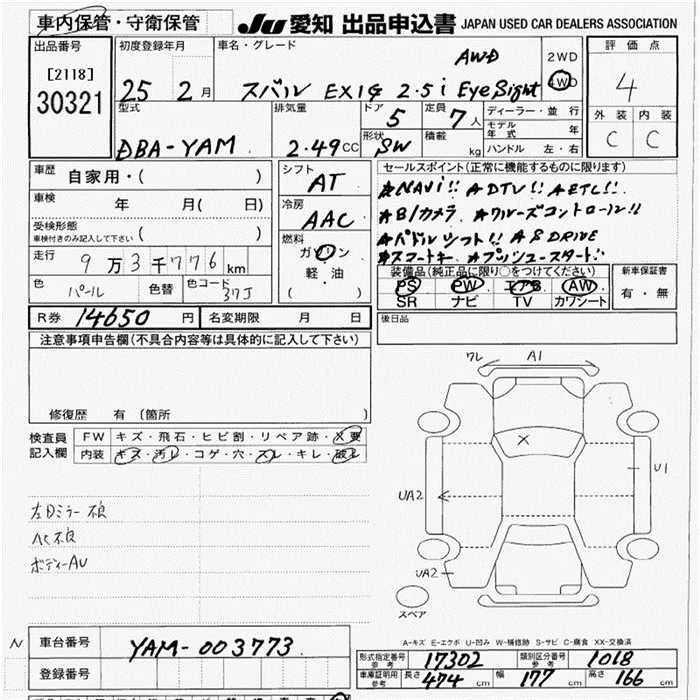 車内保管・守衛保管 JU 愛知 出品申込書 JAPAN USED CAR DEALERS ASSOCIATION
出品番号 初度登録年月 車名・グレード AWD 2WD 評価点
[2118] 25 2月 スバル EXIG 2.5i EyeSight 4WD 4
30321 型式 排気量 ドア 5 定員 7人 ディーラー・並行 外装 内装
DBA-YAM 2.49CC 形状 SW 積載 kg モデル年式 年 C C
ハンドル 左・右
車歴 自家用・( ) シフト AT セールスポイント(正常に機能するものに限ります)
車検 年 月( 日) 冷房 AAC ★NAVi!! ★DTV!! ★ETC!!
受検形態 ( ) ★B/カメラ ★クルーズコントロール!!
車検付きのみ記入して下さい
燃料 ★パドルシフト!! ★S DRIVE
走行 9万3千776km ガソリン ★スマートキー ★プッシュスタート!!
軽・油 装備品(純正品に限り○をつけてください) 新車保証書
色 パール 色替 色コード 37J ( ) PS PW エアB AW 有・無
SR ナビ TV カワシート
R券 14650円 名変期限 月 日 後日品
注意事項申告欄(不具合内容等は具体的に記入して下さい)
ワレ A1
修復歴 有(箇所 )
検査員 FW キズ・飛石・ヒビ割・リペア跡・X要
記入欄 内装 キズ・汚レ・コゲ・穴・スレ・キレ・破レ
X
U1
UA2
左Dミラー不良
不良
ボディーAU
UA2
スペア
A-キズ E-エクボ U-凹み W-補修跡 S-サビ C-腐食 XX-交換済
N 車台番号 YAM-003773
形式指定番号 参考 17302 類別区分番号 参考 1018
登録番号 車庫証明用 参考 長さ 474cm 幅 177cm 高さ 166cm